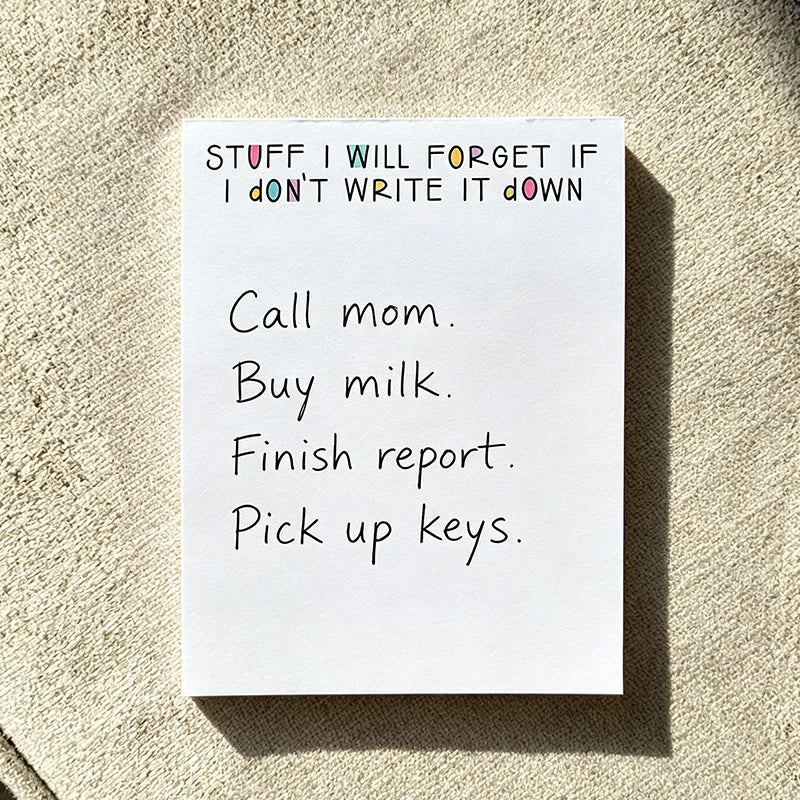 STUFF I WILL FORGET IF
I dON'T WRITE IT dOWN
Call mom.
Buy milk.
Finish report.
Pick up keys.